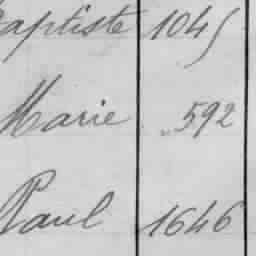 aptiste 1045
Marie 592
Paul 1646